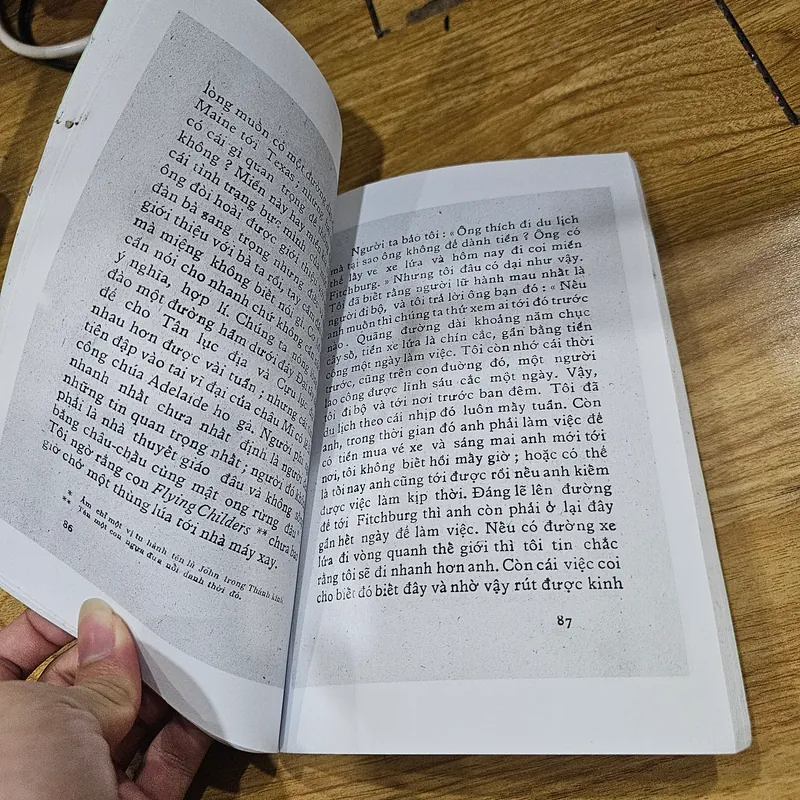 lòng muốn có một đường
Maine tới Texas; nhưng
có cái gì quan trọng để
không? Miền này hay miền
cái tình trạng bực mình của
ông đòi hoài được giới thiệu
đàn bà sang trọng nhưng được
giới thiệu với bà ta rồi, tay cầm
mà miệng không biết nói gì. Cơ
cần nói cho nhanh chứ không cần
ý nghĩa, hợp lí. Chúng ta nóng
đào một đường hầm dưới đáy Đại
để cho Tân lục địa và Cựu lục
nhau hơn được vài tuần; nhưng cái
tiên đập vào tai vĩ đại của châu Mĩ có
công chúa Adelaide ho gà. Người phi
nhanh nhất chưa nhất định là người
những tin quan trọng nhất; người đó không
phải là nhà thuyết giáo đâu và không sống
bằng châu-chấu cùng mật ong rừng đâu*
Tôi ngờ rằng con Flying Childers ** chưa bao
giờ chở một thùng lúa tới nhà máy xay.
* Ám chỉ một vị tu hành tên là John trong Thánh kinh.
** Tên một con ngựa đua nổi danh thời đó.
86
Người ta bảo tôi: «Ông thích đi du lịch
mà tại sao ông không để dành tiền? Ông có
thể lấy vé xe lửa và hôm nay đi coi miền
Fitchburg.» Nhưng tôi đâu có dại như vậy.
Tôi đã biết rằng người lữ hành mau nhất là
người đi bộ, và tôi trả lời ông bạn đó: «Nếu
anh muốn thì chúng ta thử xem ai tới đó trước
nào. Quãng đường dài khoảng năm chục
cây số, tiền xe lửa là chín cắc, gần bằng tiền
công một ngày làm việc. Tôi còn nhớ cái thời
trước, cũng trên con đuờng đó, một người
lao công được lĩnh sáu cắc một ngày. Vậy,
tôi đi bộ và tới nơi trước ban đêm. Tôi đã
du lịch theo cái nhịp đó luôn mấy tuần. Còn
anh, trong thời gian đó anh phải làm việc để
có tiền mua vé xe và sáng mai anh mới tới
nơi, tôi không biết hồi mấy giờ; hoặc có thể
là tối nay anh cũng tới được rồi nếu anh kiếm
được việc làm kịp thời. Đáng lẽ lên đường
để tới Fitchburg thì anh còn phải ở lại đây
gần hết ngày để làm việc. Nếu có đường xe
lửa đi vòng quanh thế giới thì tôi tin chắc
rằng tôi sẽ đi nhanh hơn anh. Còn cái việc coi
cho biết đó biết đây và nhờ vậy rút được kinh
87